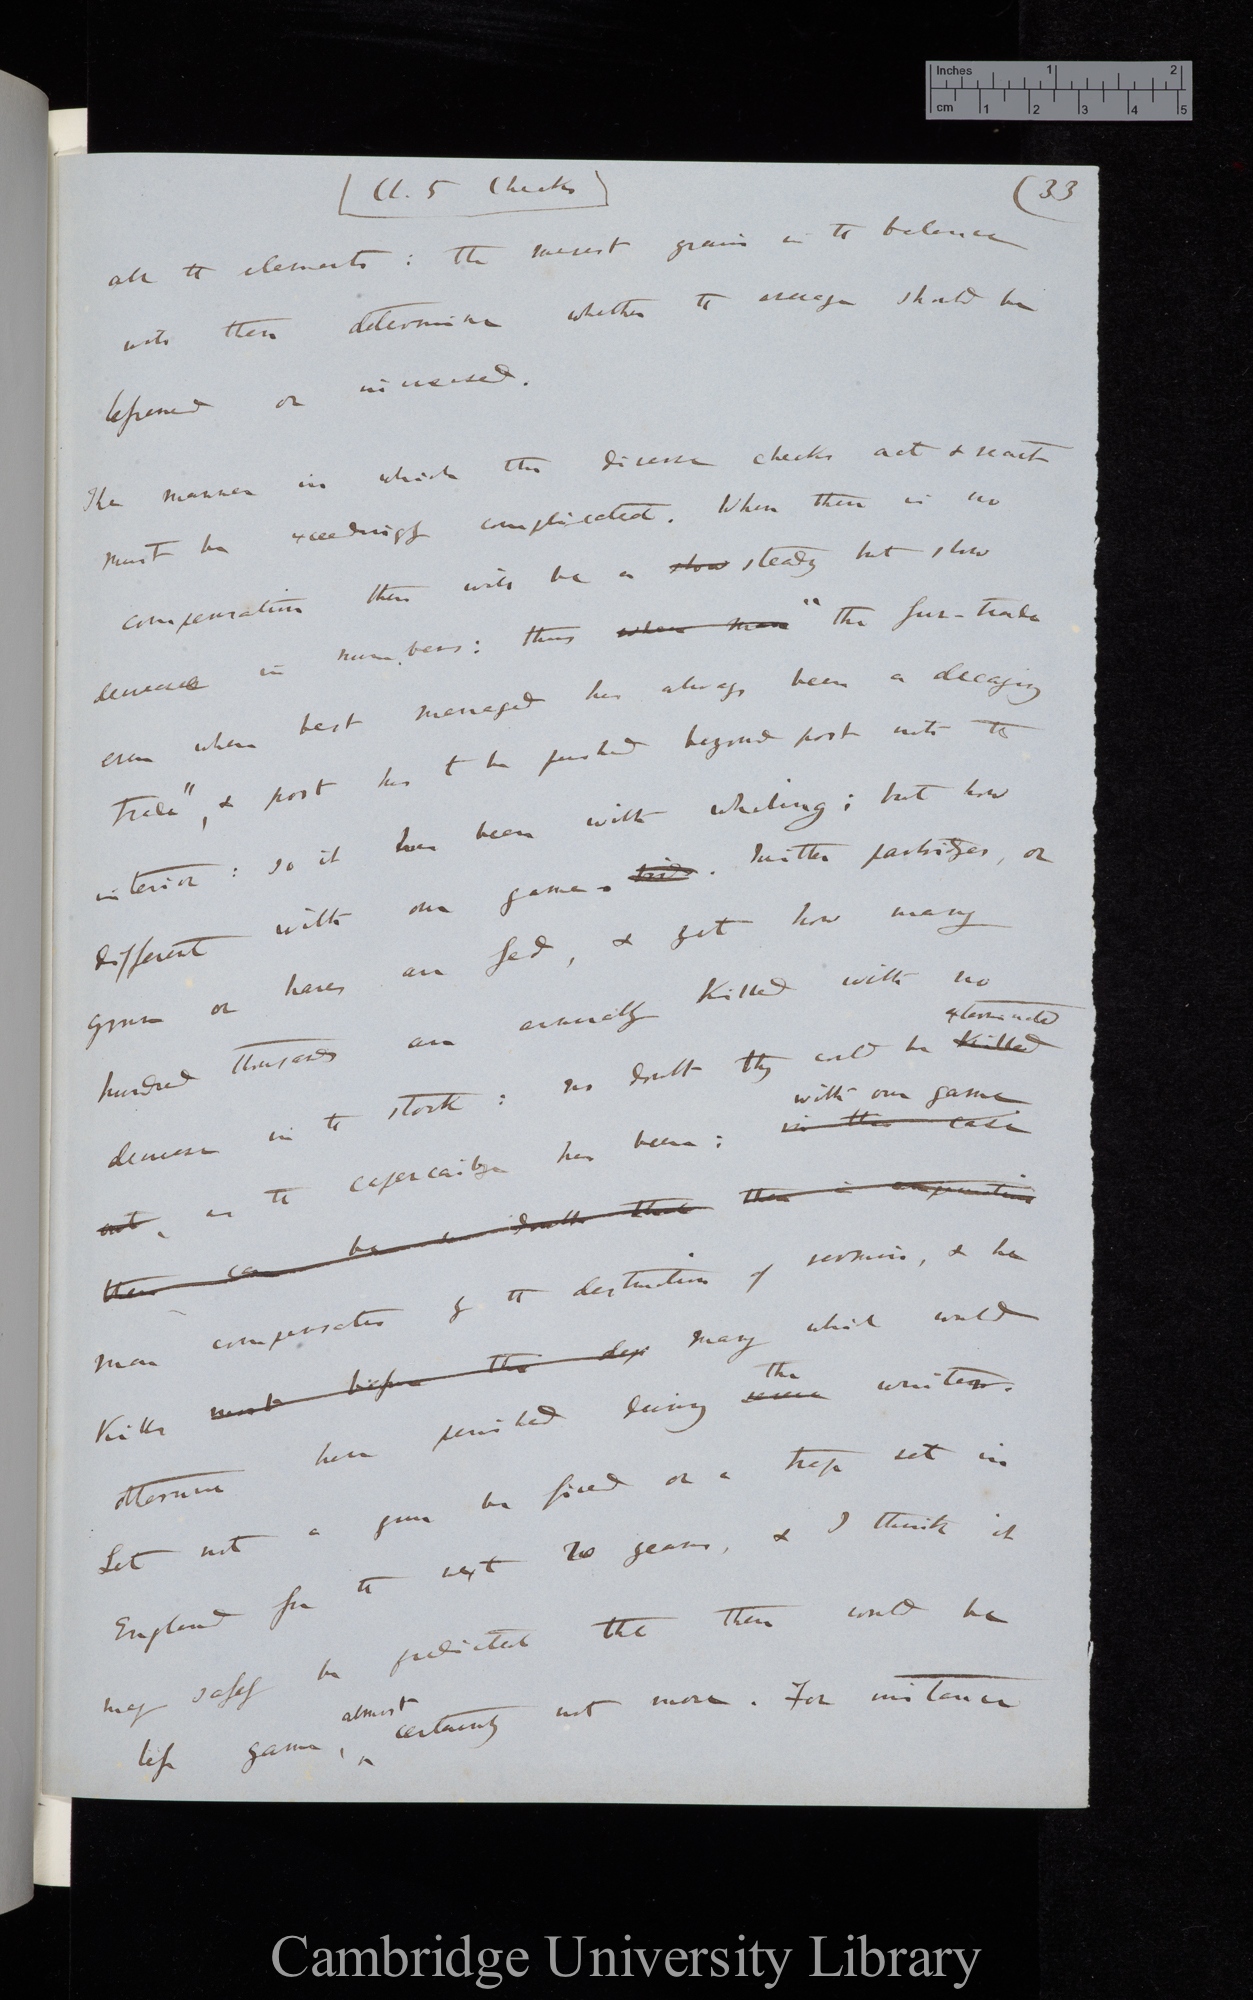 Inches 1 2
cm 1 2 3 4 5
(Ch. 5 Checks) (33
all the elements: the merest grain in the balance
will then determine whether the average should be
lessened or increased.
The manner in which the diverse checks act & react
must be exceedingly complicated. When there is no
compensation there will be a slow steady but slow
decrease in numbers: thus when man "the fur-trade
even when best managed has always been a decaying
trade", & post has to be pushed beyond post into the
interior: so it has been with whaling; but how
different with our game. Neither partridges, or
grouse or hares are fed, & yet how many
hundred thousands are annually killed with no
exterminated
decrease in the stock: no doubt they could be killed
with our game
out, as the capercailzie has been: in this case
there can be no doubt that there is compensation
man compensates by the destruction of vermin, & he
kills must before the dep many which would
the
otherwise have perished during severe winters.
Let not a gun be fired or a trap set in
England for the next 20 years, & I think it
may safely be predicted that there would be
almost
less game, ^ certainly not more. For instance
Cambridge University Library